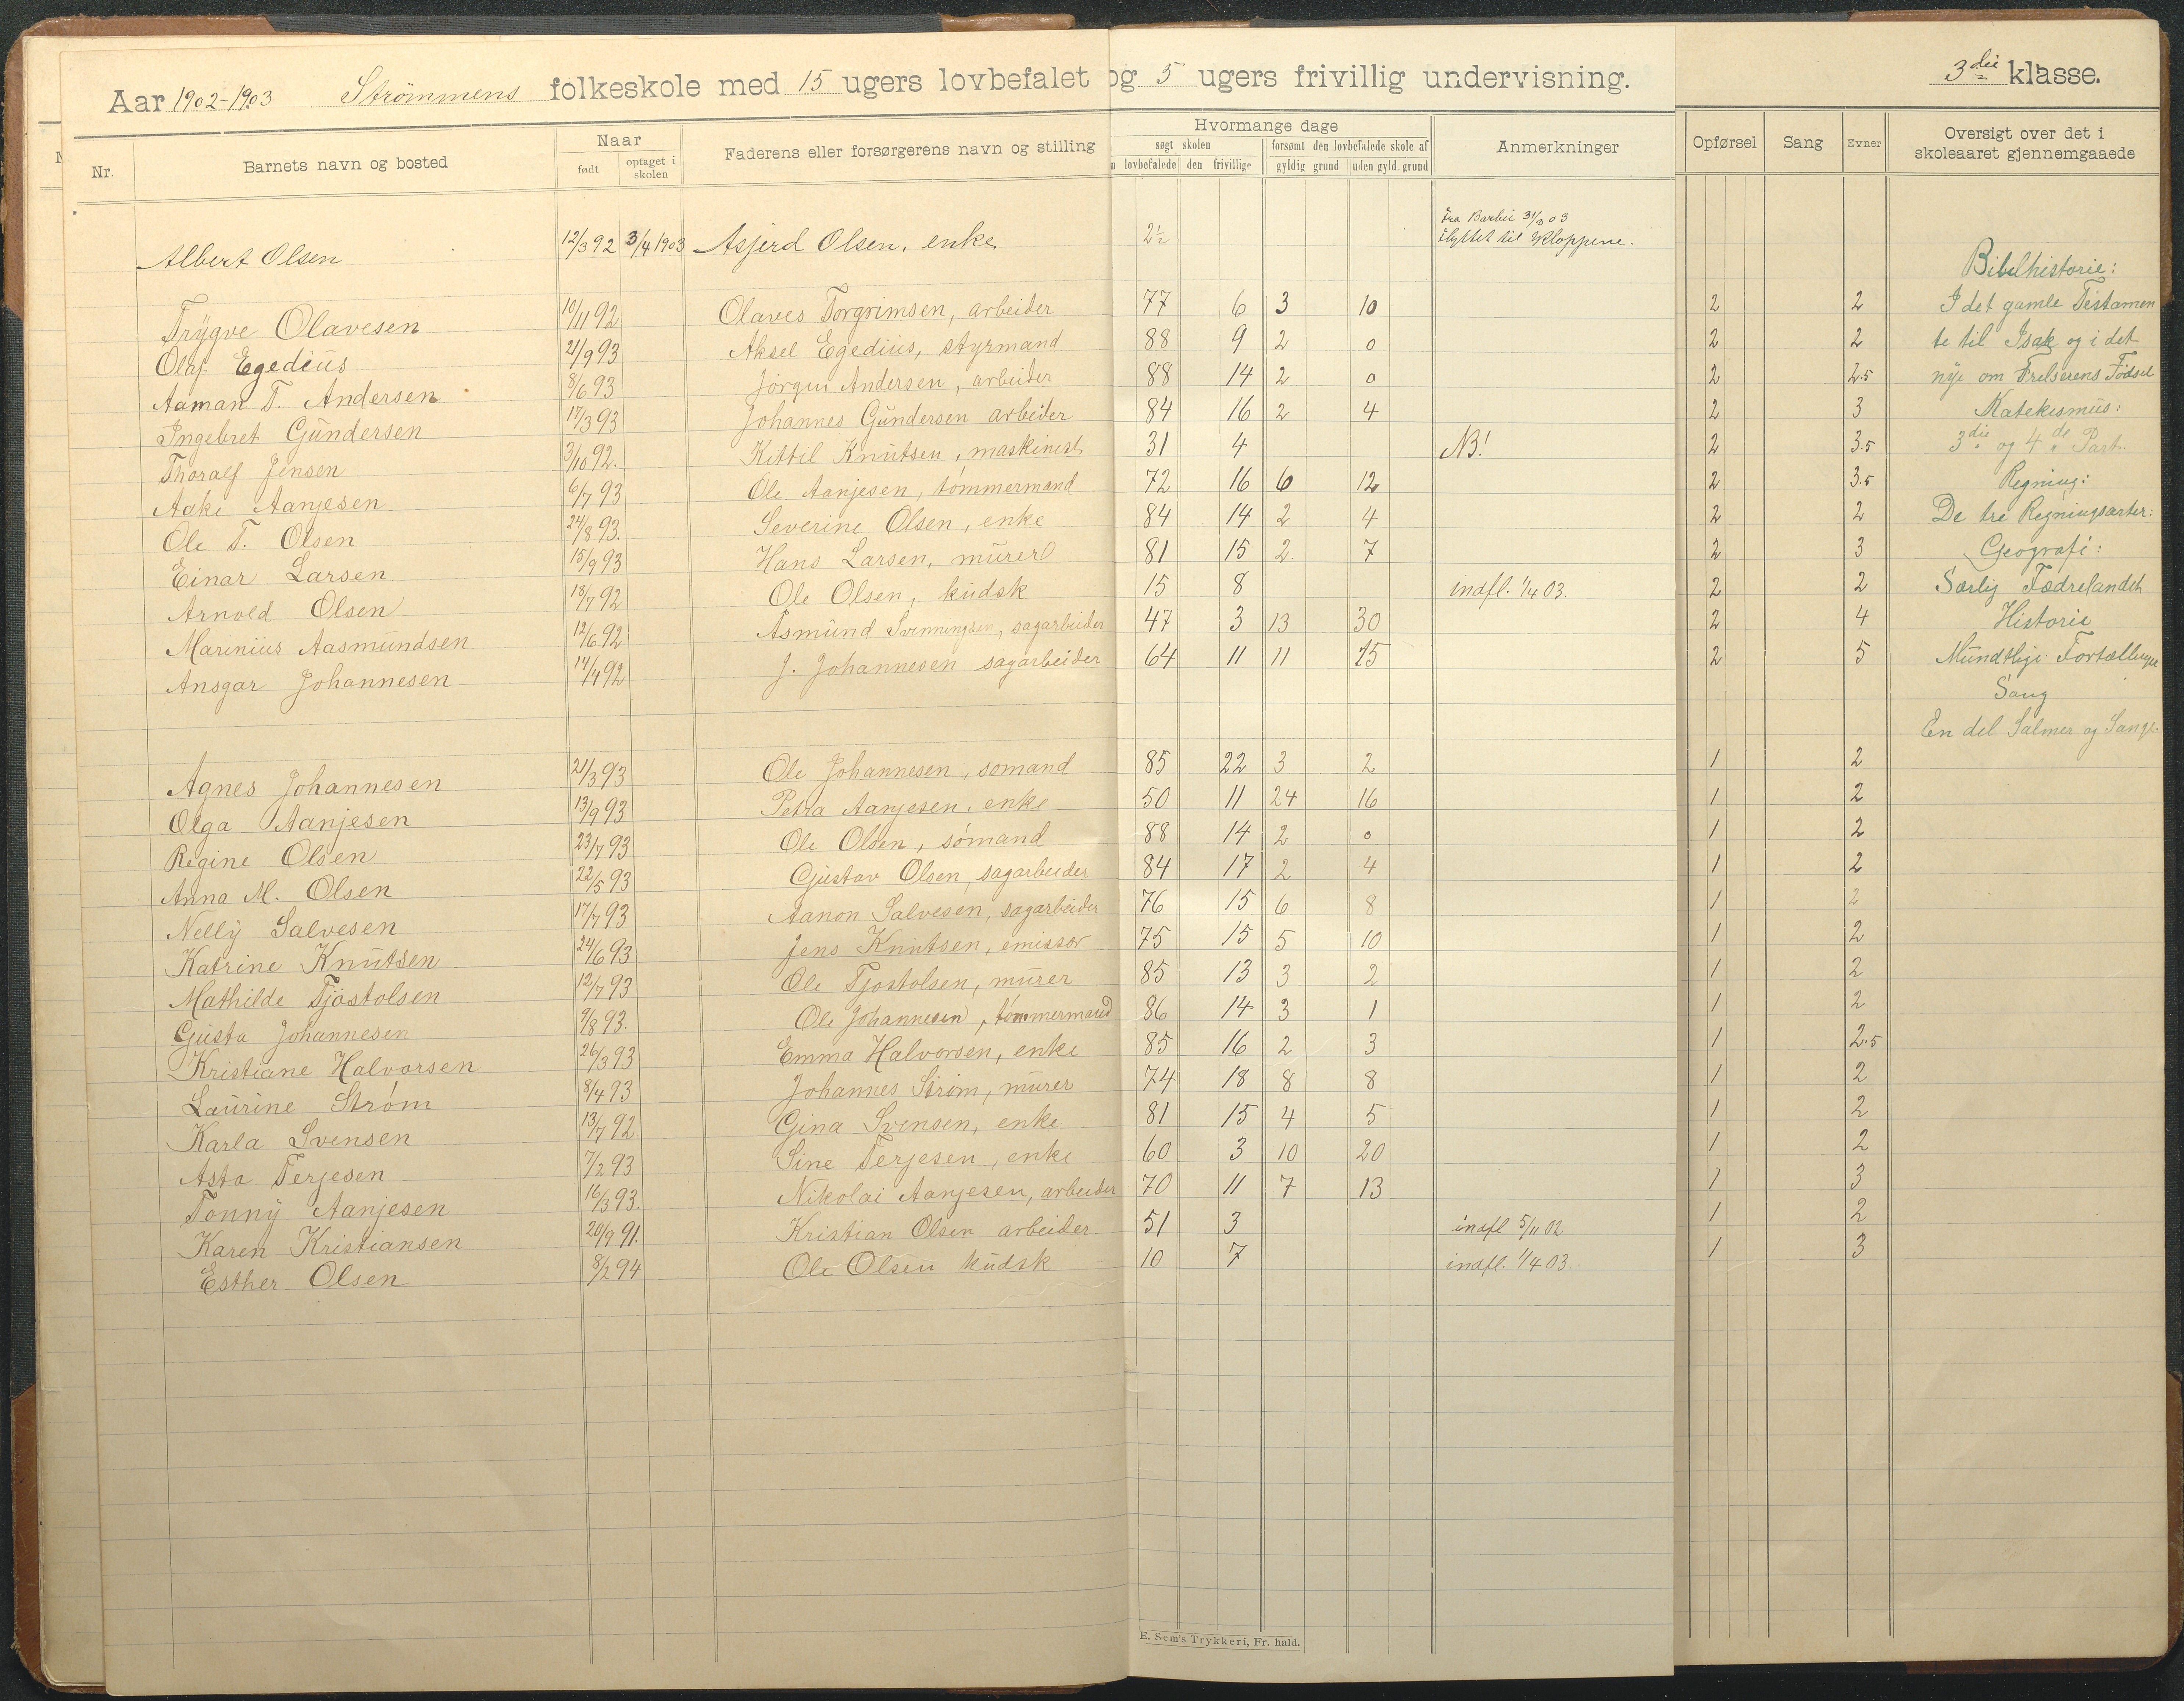 Aar 1902-1903 Strömmens folkeskole med 15 ugers lovbefalet og 5 ugers frivillig undervisning. 3die klasse.
Nr. Barnets navn og bosted Naar født optaget i skolen Faderens eller forsørgerens navn og stilling Hvormange dage søgt skolen n lovbefalede den frivillige forsømt den lovbefalede skole af gyldig grund uden gyld. grund Anmerkninger Opførsel Sang Evner Oversigt over det i skoleaaret gjennemgaaede
Albert Olsen 12/3 92 3/4 1903 Asjerd Olsen, enke 2½ fra Barbu 31/3 03 flyttet til Kloppene.
Bibelhistorie:
Trygve Olavesen 10/11 92 Olaves Torgrimsen, arbeider 77 6 3 10 2 2 I det gamle Testamen
Olaf Egedius 21/9 93 Aksel Egedius, styrmand 88 9 2 0 2 2 te til Isak og i det
Aaman T. Andersen 8/6 93 Jörgen Andersen, arbeider 88 14 2 0 2 2.5 nye om Frelserens Födsel
Ingebret Gundersen 17/3 93 Johannes Gundersen arbeider 84 16 2 4 2 3 Katekismus:
Thoralf Jensen 3/10 92. Kittil Knutsen, maskinist 31 4 NB! 2 3.5 3die og 4de Part.
Aake Aanjesen 6/7 93 Ole Aanjesen, tömmermand 72 16 6 12 2 3.5 Regning:
Ole T. Olsen 24/8 93. Severine Olsen, enke 84 14 2 4 2 2 De tre Regningsarter:
Einar Larsen 15/9 93 Hans Larsen, murer 81 15 2. 7 2 3 Geografi:
Arnold Olsen 18/7 92 Ole Olsen, kudsk 15 8 indfl. 1/4 03. 2 2 Særlig Fædrelandet
Marinius Aasmundsen 12/6 92 Asmund Svenningsen, sagarbeider 47 3 13 30 2 4 Historie
Ansgar Johannesen 14/4 92 J. Johannesen sagarbeider 64 11 11 15 2 5 Mundtlige Fortællinger
Sang
En del Salmer og Sange.
Agnes Johannesen 21/3 93 Ole Johannesen, sømand 85 22 3 2 1 2
Olga Aanjesen 13/9 93 Petra Aanjesen, enke 50 11 24 16 1 2
Regine Olsen 23/7 93 Ole Olsen, sömand 88 14 2 0 1 2
Anna M. Olsen 22/5 93 Gustav Olsen, sagarbeider 84 17 2 4 1 2
Nelly Salvesen 17/7 93 Aanon Salvesen, sagarbeider 76 15 6 8 1 2
Katrine Knutsen 24/6 93 Jens Knutsen, emissær 75 15 5 10 1 2
Mathilde Tjöstolsen 12/7 93 Ole Tjostolsen, murer 85 13 3 2 1 2
Gusta Johannesen 9/8 93. Ole Johannesen, tömmermand 86 14 3 1 1 2
Kristiane Halvorsen 26/3 93 Emma Halvorsen, enke 85 16 2 3 1 2.5
Laurine Ström 8/4 93 Johannes Ström, murer 74 18 8 8 1 2
Karla Svensen 13/7 92. Gina Svensen, enke 81 15 4 5 1 2
Asta Terjesen 7/2 93 Sine Terjesen, enke 60 3 10 20 1 2
Tonny Aanjesen 16/3 93. Nikolai Aanjesen, arbeider 70 11 7 13 1 3
Karen Kristiansen 20/9 91. Kristian Olsen arbeider 51 3 indfl 5/11 02 1 2
Esther Olsen 8/2 94 Ole Olsen kudsk 10 7 indfl. 1/4 03. 1 3
E. Sem's Trykkeri, Fr. hald.